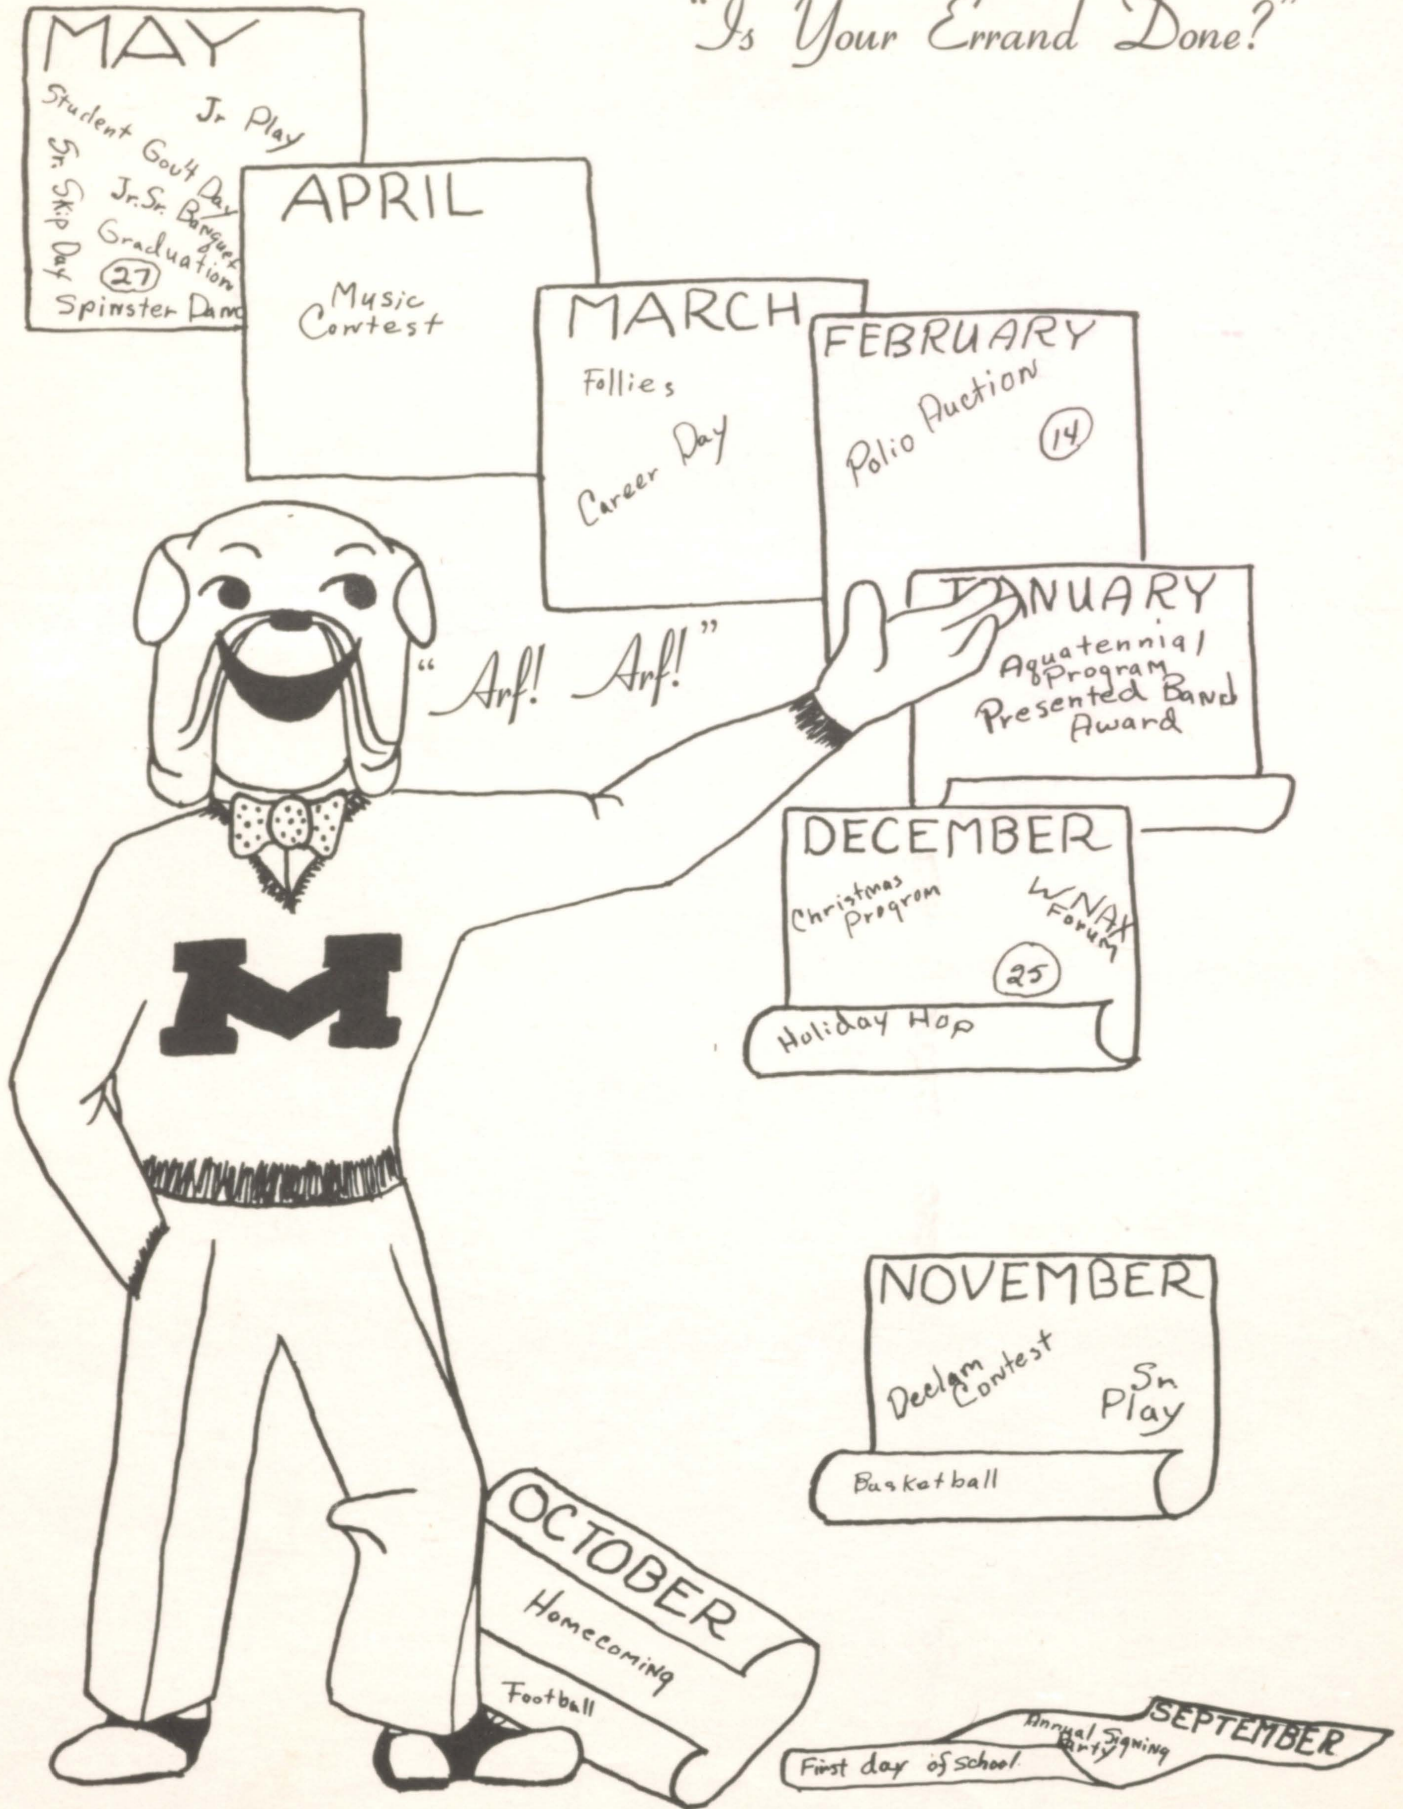 "Is Your Errand Done?"
MAY
Jr Play
Student Gov't Day
Sr. Skip Day
Jr. Sr. Banquet
Graduation
27
Spinster Danc
APRIL
Music
Contest
MARCH
Follies
Career Day
FEBRUARY
Polio Auction
14
JANUARY
Aquatennial
Program
Presented Band
Award
"Arf! Arf!"
DECEMBER
Christmas
Program
WNAX
Forum
25
Holiday Hop
M
NOVEMBER
Declam
Contest
Sr
Play
Basketball
OCTOBER
Homecoming
Football
SEPTEMBER
Annual Signing
Party
First day of School